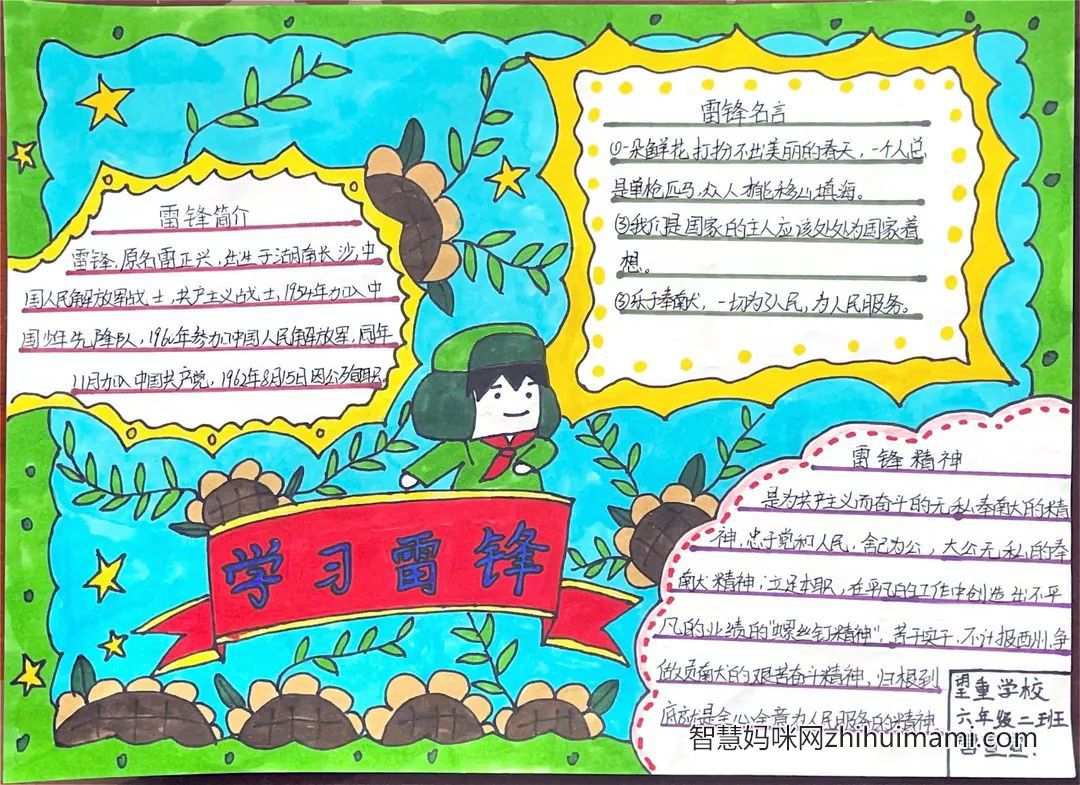 雷锋简介
雷锋,原名雷正兴,出生于湖南长沙,中
国人民解放军战士,共产主义战士,1954年加入中
国少年先降队,1960年参加中国人民解放军,同年
11月加入中国共产党,1962年8月15日因公殉职。
雷锋名言
①一朵鲜花打扮不出美丽的春天,一个人总
是单枪匹马,众人才能移山填海。
③我们是国家的主人应该处处为国家着
想。
③乐于奉献,一切为了人民,为人民服务。
学习雷锋
雷锋精神
是为共产主义而奋斗的无私奉献的精
神,忠于党和人民,舍己为公,大公无私的奉
献精神;立足本职,在平凡的工作中创造出不平
凡的业绩的"螺丝钉精神",苦于实干,不计报酬,争
做贡献的艰苦奋斗精神,归根到
底就是全心全意为人民服务的精神
望重学校
六年级二班
智慧妈咪网zhihuimami.com